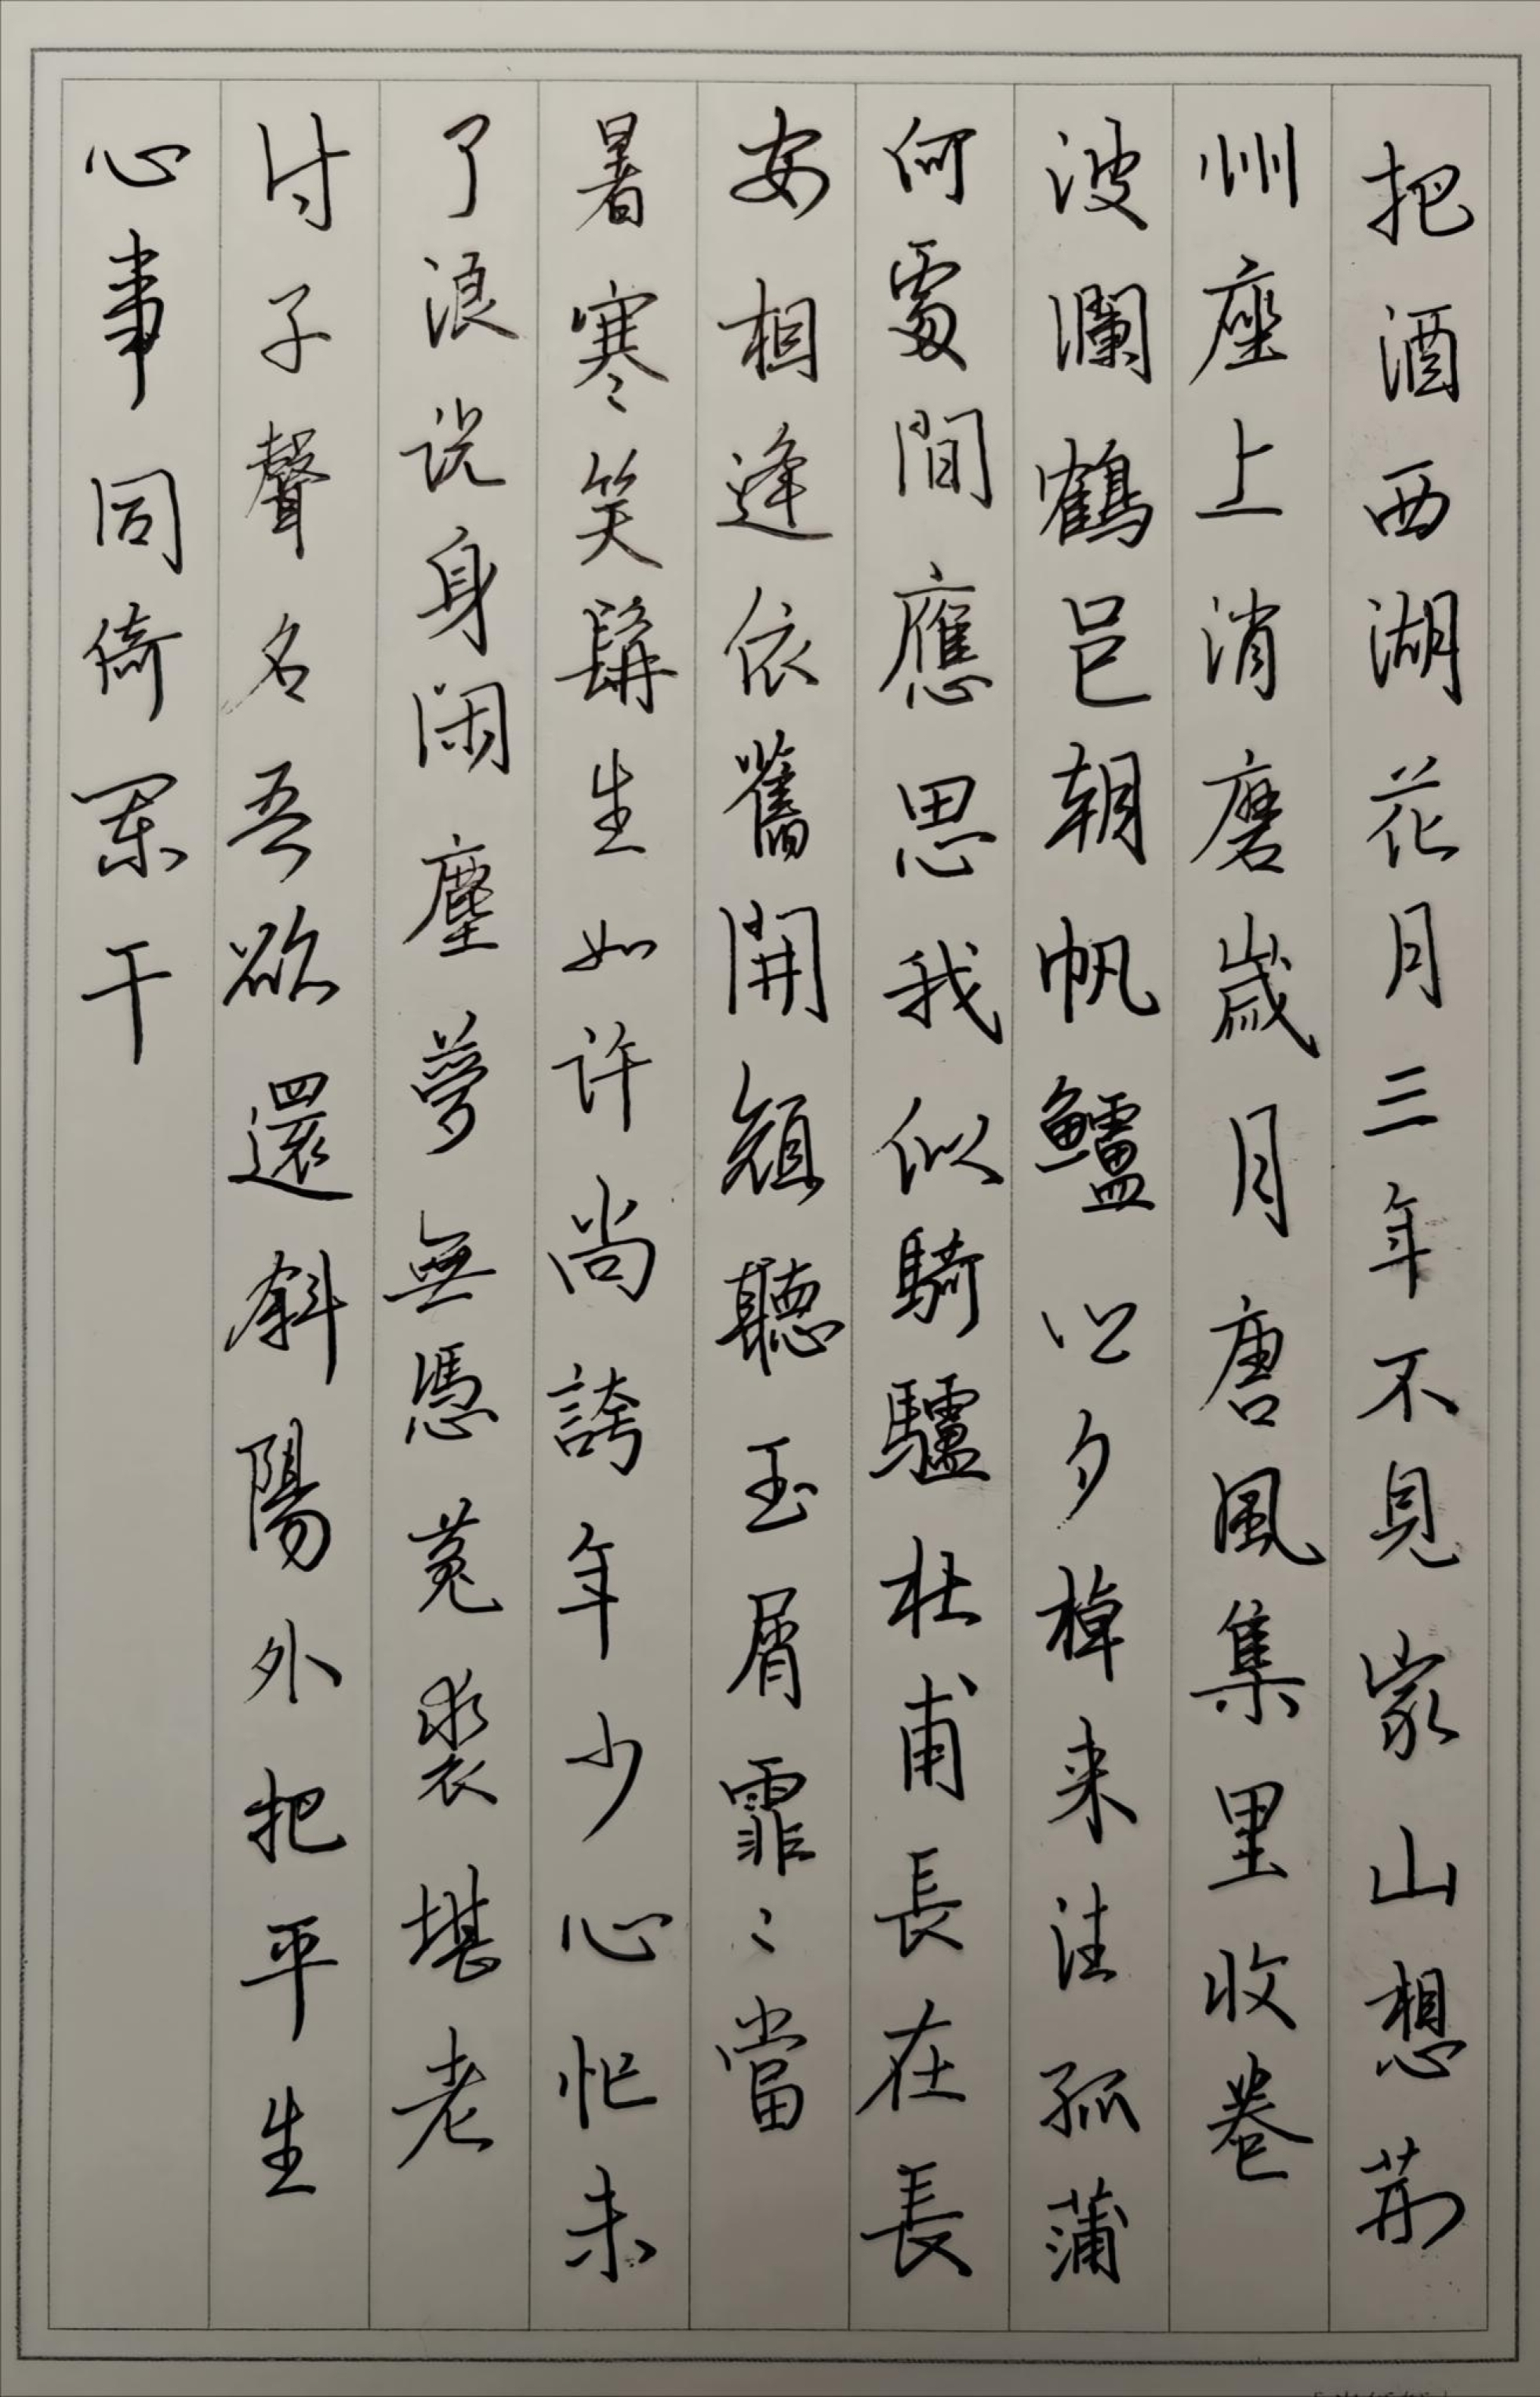 把酒西湖花月三年不見家山想荆
州座上消磨歲月唐風集里收卷
波瀾鶴邑朝帆鱸江夕棹来往孤蒲
何處間應思我似騎驢杜甫長在長
安相逢依舊開顔聽玉屑霏〻當
暑寒笑髯生如许尚誇年少心忙未
了浪说身闲塵夢無憑菟裘堪老
付子聲名吾欲還斜陽外把平生
心事同倚闌干